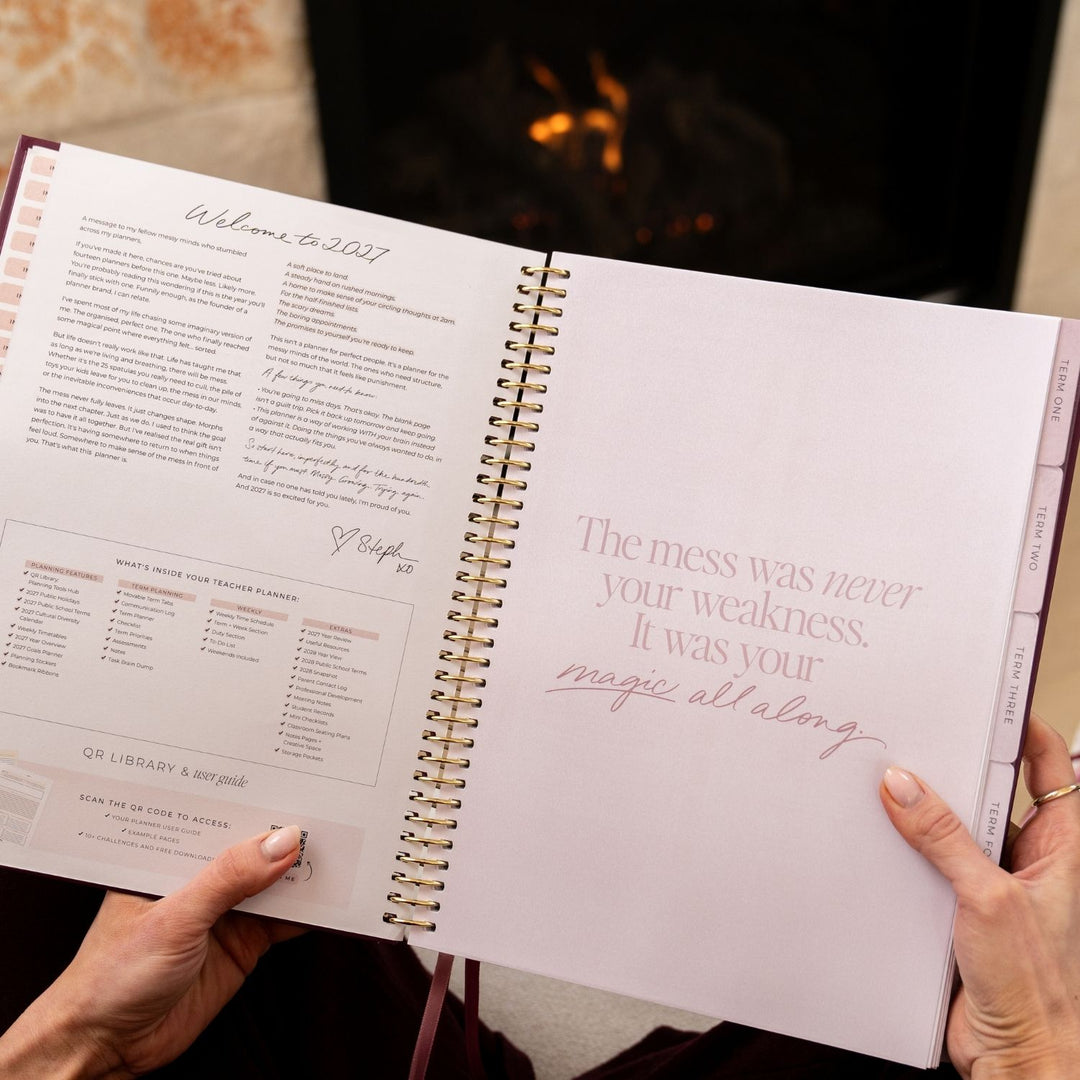 Welcome to 2027
A message to my fellow messy minds who stumbled
across my planners,
If you've made it here, chances are you've tried about
fourteen planners before this one. Maybe less. Likely more.
You're probably reading this wondering if this is the year you'll
finally stick with one. Funnily enough, as the founder of a
planner brand, I can relate.
I've spent most of my life chasing some imaginary version of
me. The organised, perfect one. The one who finally reached
some magical point where everything felt... sorted.
But life doesn't really work like that. Life has taught me that
as long as we're living and breathing, there will be mess.
Whether it's the 25 spatulas you really need to cull, the pile of
toys your kids leave for you to clean up, the mess in our minds,
or the inevitable inconveniences that occur day-to-day.
The mess never fully leaves. It just changes shape. Morphs
into the next chapter. Just as we do. I used to think the goal
was to have it all together. But I've realised the real gift isn't
perfection. It's having somewhere to return to when things
feel loud. Somewhere to make sense of the mess in front of
you. That's what this planner is.
A soft place to land.
A steady hand on rushed mornings.
A home to make sense of your circling thoughts at 2am.
For the half-finished lists.
The scary dreams.
The boring appointments.
The promises to yourself you're ready to keep.
This isn't a planner for perfect people. It's a planner for the
messy minds of the world. The ones who need structure,
but not so much that it feels like punishment.
A few things you need to know:
• You're going to miss days. That's okay. The blank page
isn't a guilt trip. Pick it back up tomorrow and keep going.
• This planner is a way of working WITH your brain instead
of against it. Doing the things you've always wanted to do, in
a way that actually fits you.
So start here, imperfectly and for the hundredth
time if you must. Messy. Growing. Trying again.
And in case no one has told you lately, I'm proud of you.
And 2027 is so excited for you.
Steph
xo
WHAT'S INSIDE YOUR TEACHER PLANNER:
PLANNING FEATURES
QR Library:
Planning Tools Hub
2027 Public Holidays
2027 Public School Terms
2027 Cultural Diversity
Calendar
Weekly Timetables
2027 Year Overview
2027 Goals Planner
Planning Stickers
Bookmark Ribbons
TERM PLANNING
Movable Term Tabs
Communication Log
Term Planner
Checklist
Term Priorities
Assessments
Notes
Task Brain Dump
WEEKLY
Weekly Time Schedule
Term + Week Section
Duty Section
To-Do List
Weekends Included
EXTRAS
2027 Year Review
Useful Resources
2028 Year View
2028 Public School Terms
2028 Snapshot
Parent Contact Log
Professional Development
Meeting Notes
Student Records
Mini Checklists
Classroom Seating Plans
Notes Pages +
Creative Space
Storage Pockets
QR LIBRARY & user guide
SCAN THE QR CODE TO ACCESS:
YOUR PLANNER USER GUIDE
EXAMPLE PAGES
10+ CHALLENGES AND FREE DOWNLOADS
ME
The mess was never
your weakness.
It was your
magic all along.
TERM ONE
TERM TWO
TERM THREE
TERM FO